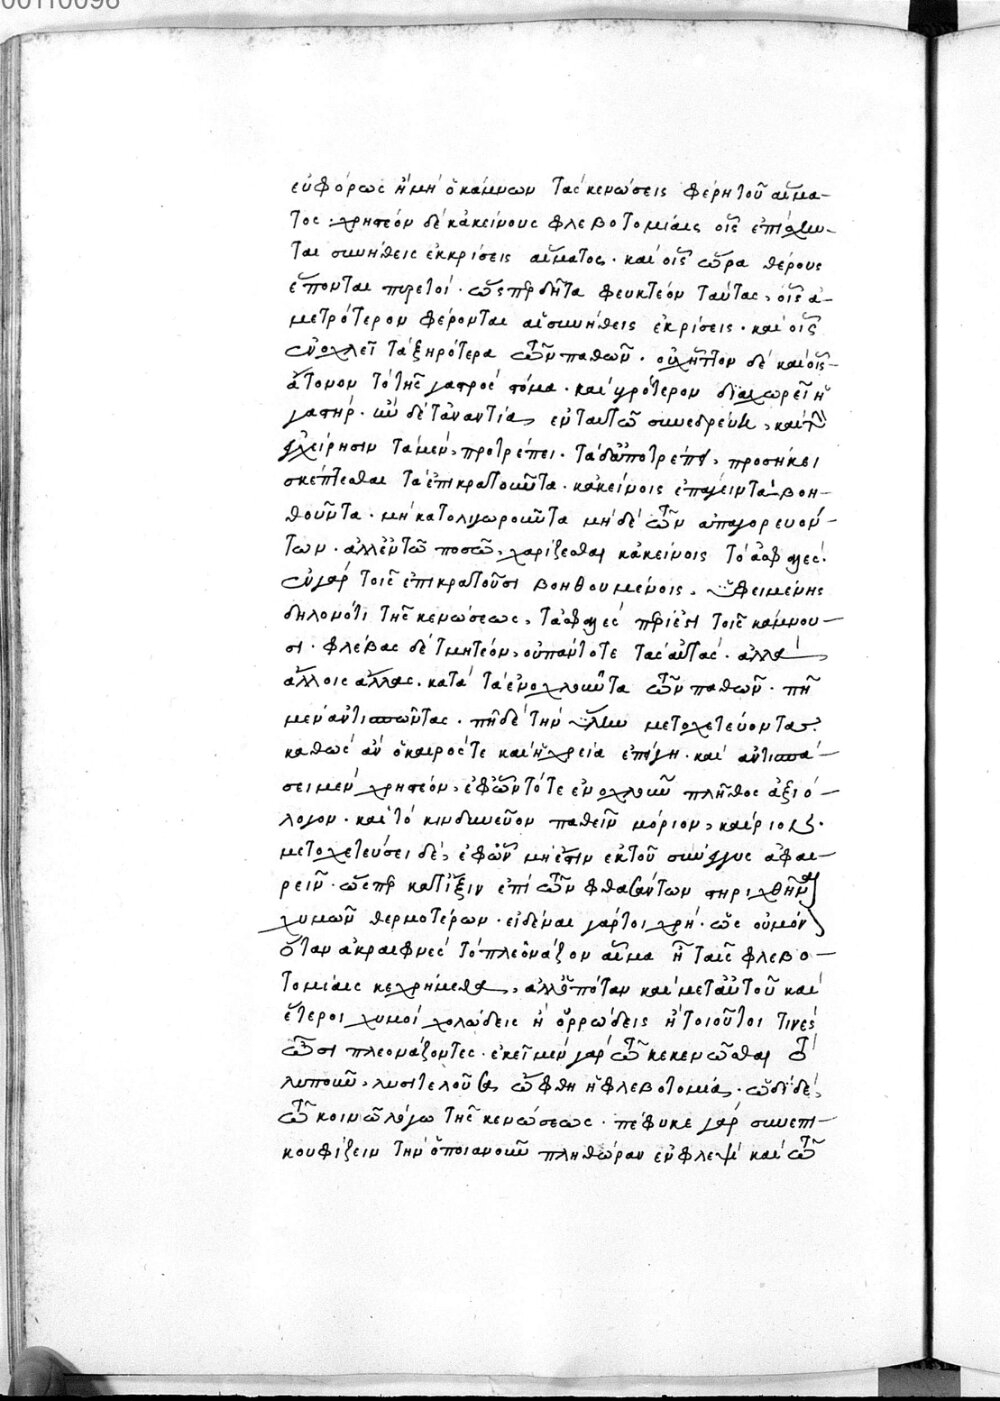 00110098
εὐφόρως ἢ μὴ ὁ κάμνων τὰς κενώσεις φέρῃ τοῦ αἵμα-
τος. χρηστέον δὲ κἀκείνους φλεβοτομίαις οἷς ἐπίσχων-
ται συνήθεις ἐκκρίσεις αἵματος. καὶ οἷς ὥρα θέρους
ἕπονται πυρετοί. ὥσπερ δῆτα φευκτέον ταύτας, οἷς ἀ-
μετρότερον φέρονται αἱ συνήθεις ἐκρίσεις. καὶ οἷς
ἐνοχλεῖ τὰ ξηρότερα τῶν παθῶν. οὐχ ἧττον δὲ καὶ οἷς
ἄτονον τὸ τῆς γαστρὸς στόμα. καὶ ὑγρότερον διαχωρεῖ ἡ
γαστήρ. ἂν δὲ τἀναντία, ἐν ταυτῷ συνεδρεύῃ, καὶ τὴν
χείρησιν τὰ μὲν, προτρέπει. τὰ δ' ἀποτρέπῃ, προσήκει
σκέπτεσθαι τὰ ἐπικρατοῦντα. κἀκείνοις ἐπάγειν τὰ βοη-
θοῦντα. μὴ κατολιγωροῦντα μὴ δὲ τῶν ἀπαγορευόν-
των. ἀλλ' ἐν τῷ ποσῷ, χαρίζεσθαι κἀκείνοις τὸ ἀσφαλές.
ἐν γὰρ τοῖς ἐπικρατοῦσι βοηθουμένοις, ὑφειμένης
δηλονότι τῆς κενώσεως, τἀσφαλὲς περίεστι τοῖς κάμνου-
σι. φλέβας δὲ τμητέον, οὐ πάντοτε τὰς αὐτάς. ἀλλὰ
ἄλλοις ἄλλας. κατὰ τὰ ἐνοχλοῦντα τῶν παθῶν. πῇ
μὲν ἀντισπῶντας. πῇ δὲ τὴν ὕλην μετοχετεύοντας.
καθὼς ἂν ὁ καιρός τε καὶ ἡ χρεία ἐπάγῃ. καὶ ἀντισπά-
σει μὲν χρηστέον, ἐφ' ὧν τότε ἐνοχλοῦν πλῆθος ἀξιό-
λογον. καὶ τὸ κινδυνεῦον παθεῖν μόριον, καίριον.
μετοχετεύσει δὲ, ἐφ' ὧν μὴ ἔστιν ἐκ τοῦ σύνεγγυς ἀφαι-
ρεῖν. ὥσπερ κατ' ἰξὺν ἐπὶ τῶν φθασάντων στηριχθῆναι
χυμῶν θερμοτέρων. εἰδέναι γάρ τοι χρὴ. ὡς οὐ μόνον
ὅταν ἀκραιφνὲς τὸ πλεονάζον αἷμα ᾖ ταῖς φλεβο-
τομίαις κεχρήμεθα, ἀλλ' ὁπόταν καὶ μετ' αὐτοῦ καὶ
ἕτεροι χυμοὶ χολώδεις ἢ ὀρρώδεις ἢ τοιοῦτοι τινὲς
ὦσι πλεονάζοντες. ἐκεῖ μὲν γὰρ τῷ κεκενῶσθαι τὸ
λυποῦν, λυσιτελοῦσα ὤφθη ἡ φλεβοτομία. ὡδὶ δὲ,
τῷ κοινῷ λόγῳ τῆς κενώσεως. πέφυκε γὰρ συνεπι-
κουφίζειν τὴν ὁποιανοῦν πληθώραν ἐν φλεψὶ καὶ τῷ